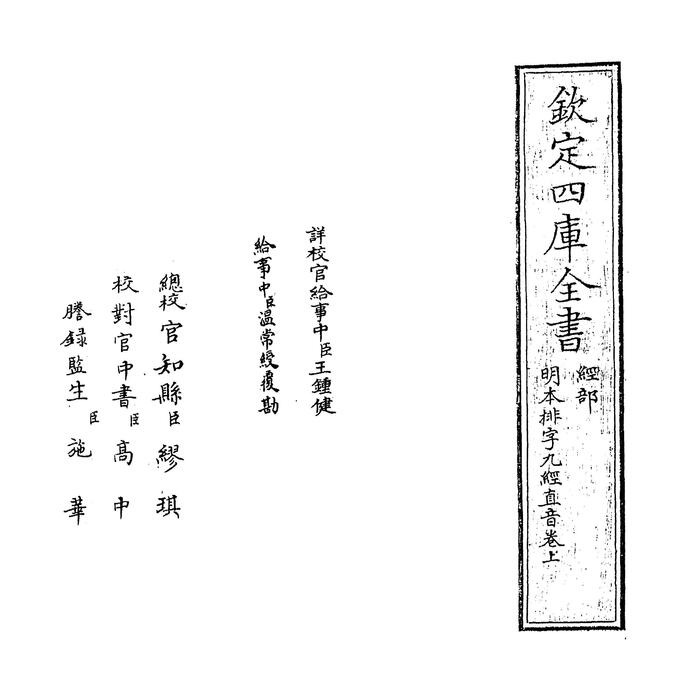 欽定四庫全書
經部
明本排字九經直音卷上
詳校官給事中臣王鍾健
給事中臣溫常綬覆勘
總校官知縣臣繆琪
校對官中書臣高中
謄錄監生臣施華